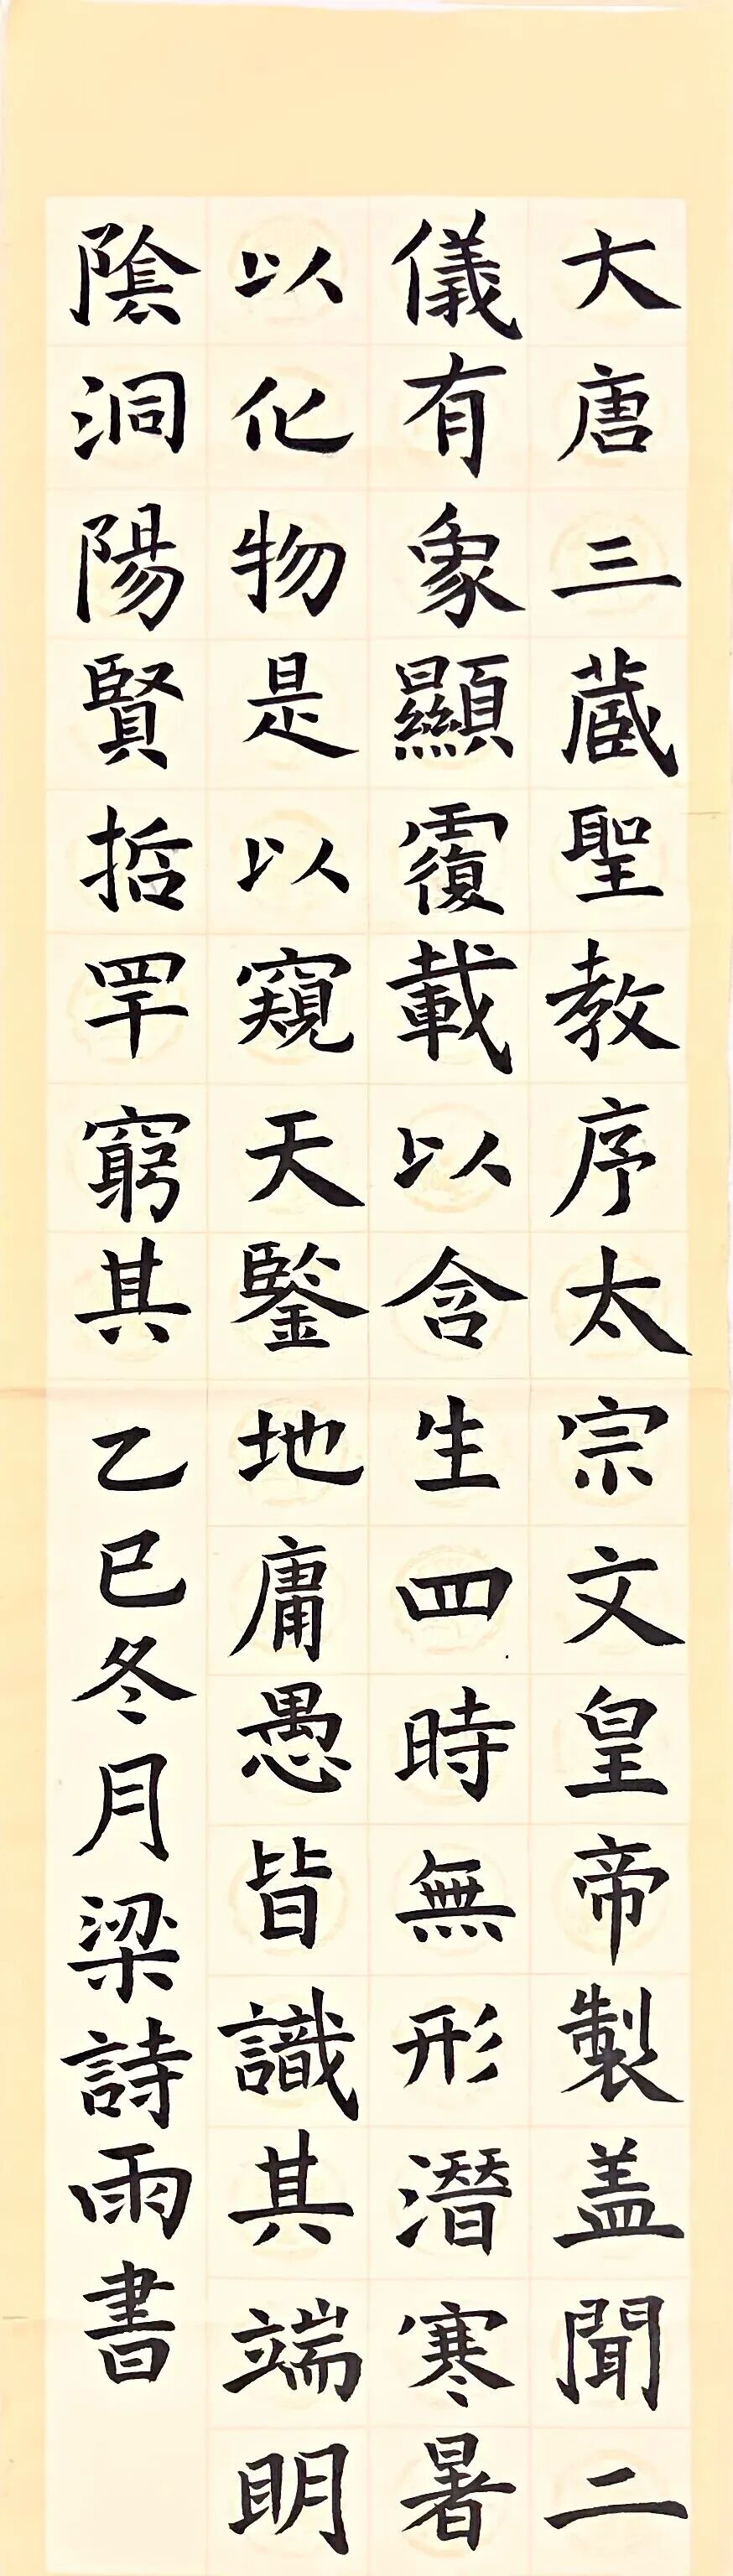 大唐三蔵聖教序太宗文皇帝製盖聞二
儀有象顯覆載以含生四時無形潛寒暑
以化物是以窺天鑒地庸愚皆識其端明
陰洞陽賢哲罕窮其乙巳冬月梁詩雨書